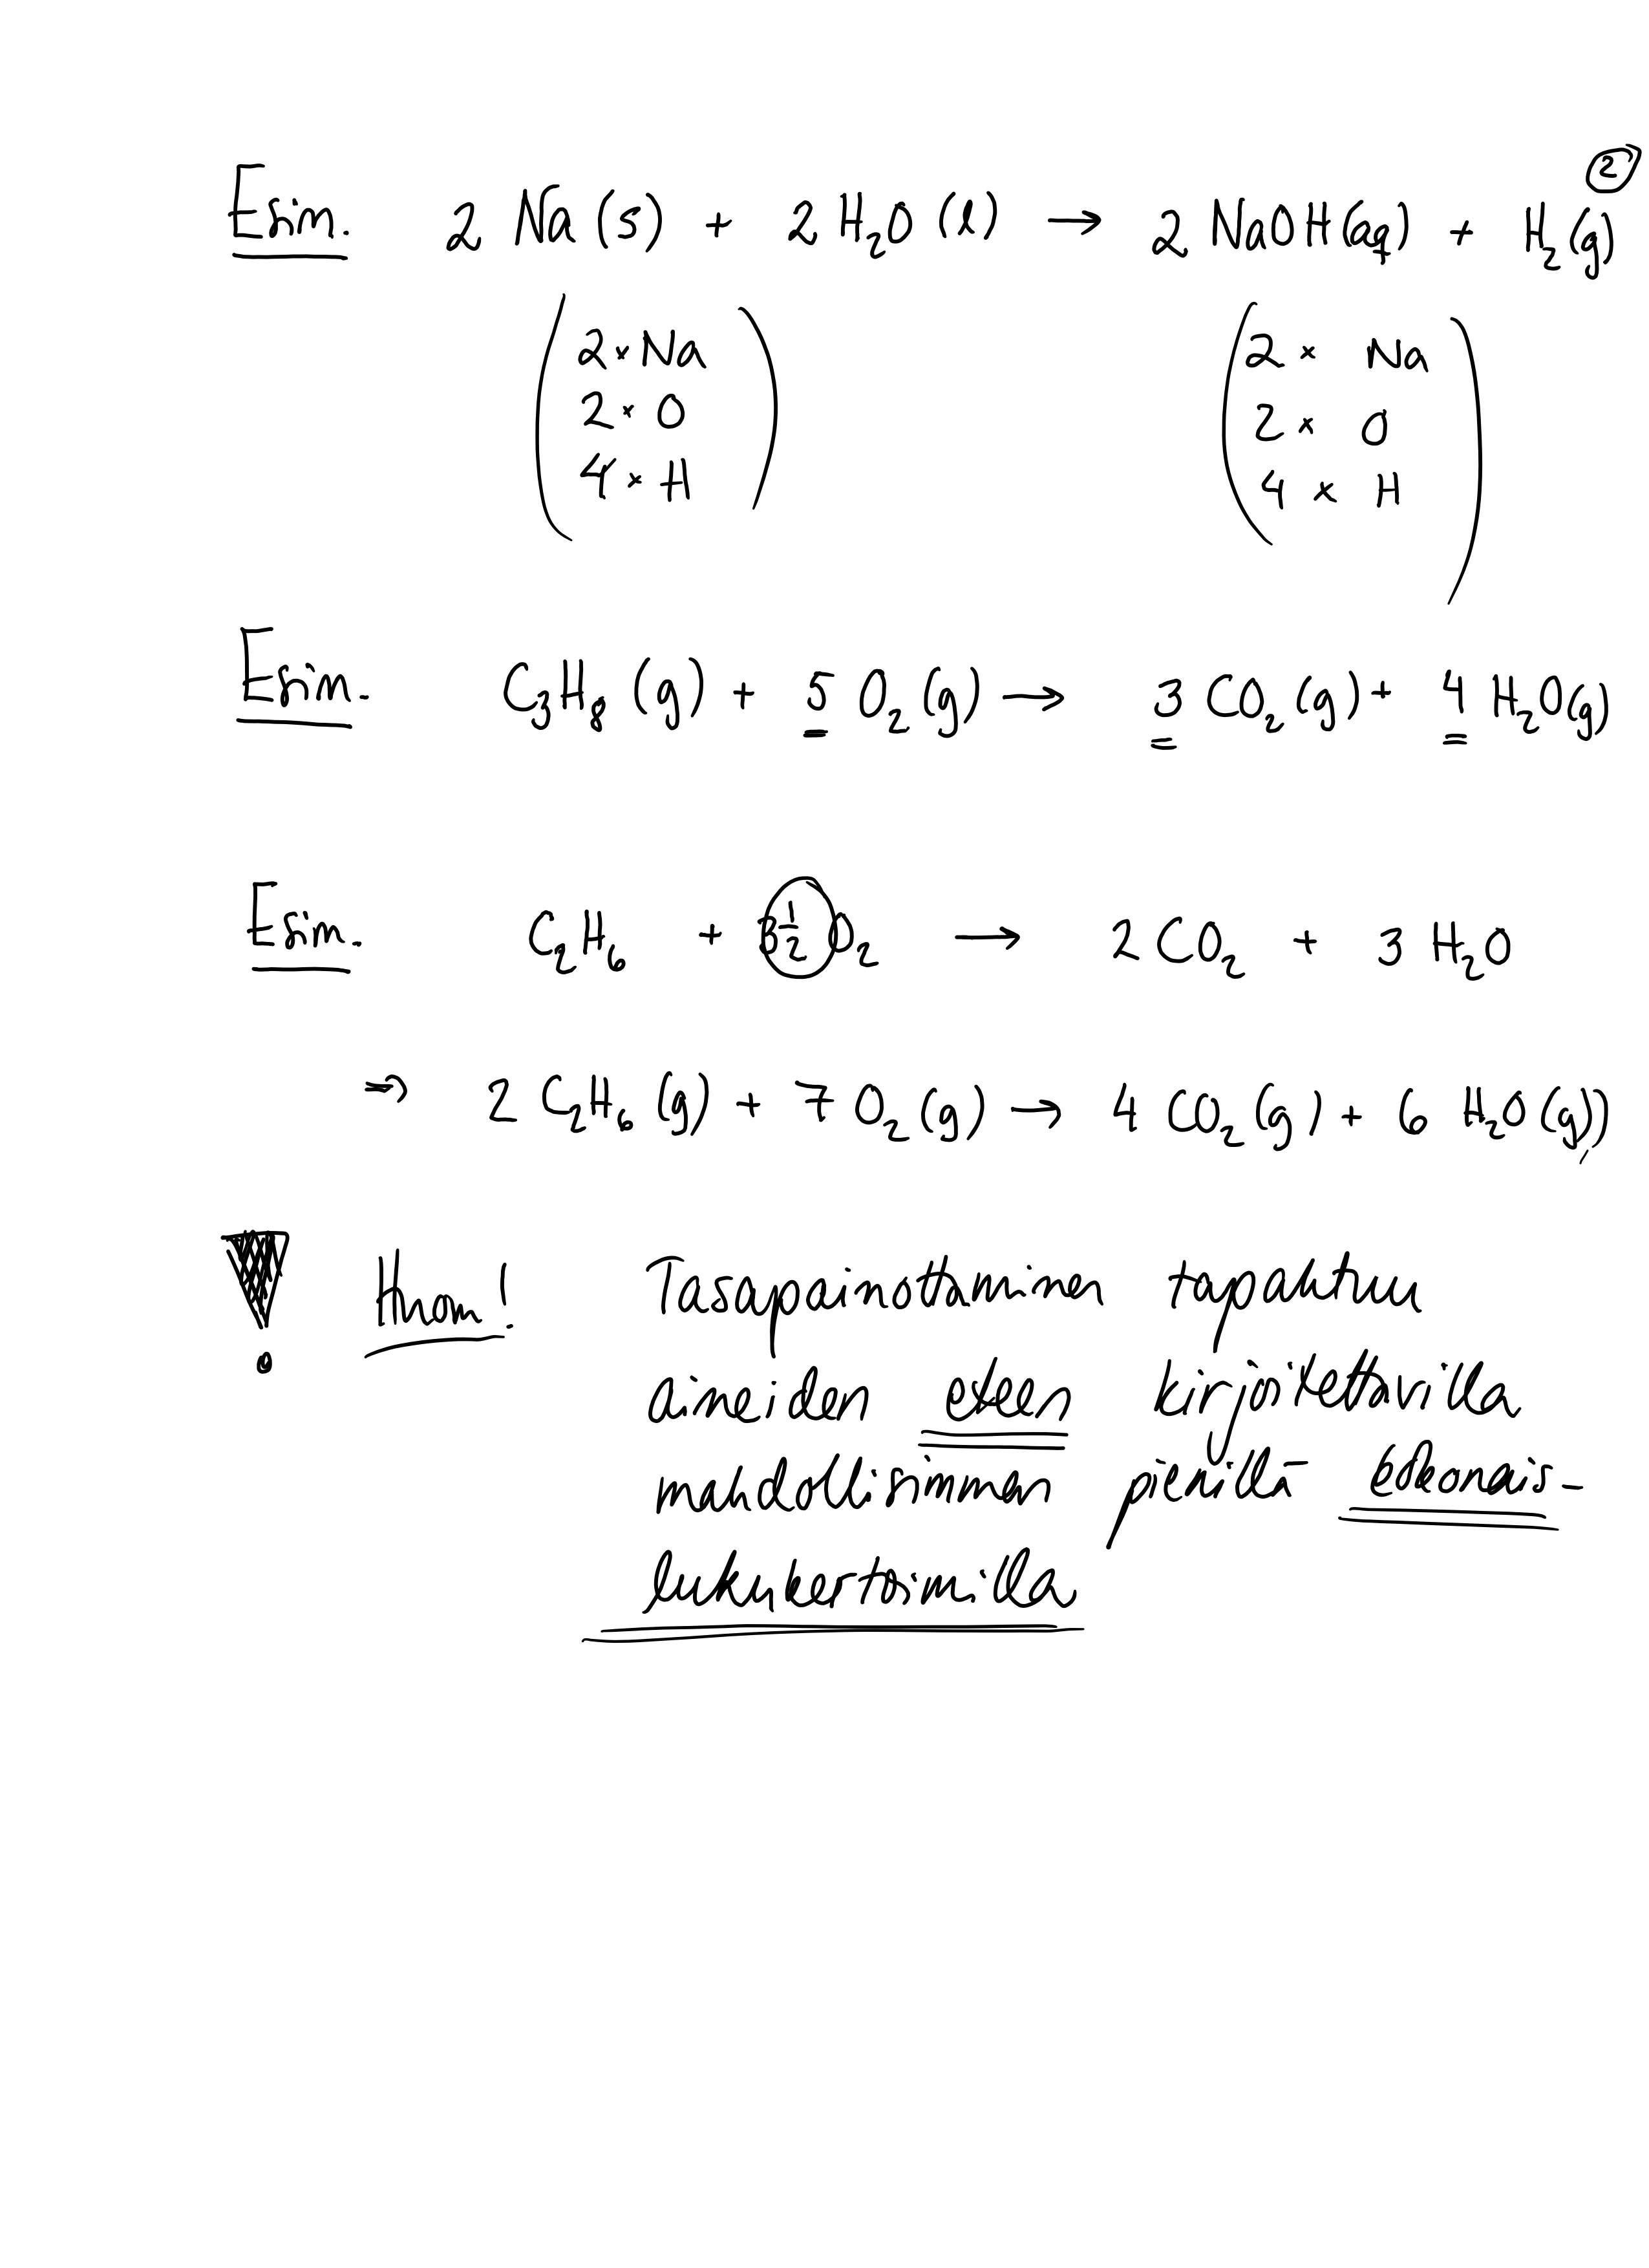 ②
Esim. 2 Na(s) + 2 H₂O(l) → 2 NaOH(aq) + H₂(g)
2 × Na 2 × Na
2 × O 2 × O
4 × H 4 × H
Esim. C₃H₈(g) + 5 O₂(g) → 3 CO₂(g) + 4 H₂O(g)
Esim. C₂H₆ + 3½ O₂ → 2 CO₂ + 3 H₂O
⇒ 2 C₂H₆(g) + 7 O₂(g) → 4 CO₂(g) + 6 H₂O(g)
! Huom! Tasapainottaminen tapahtuu
aineiden eteen kirjoitettavilla
mahdollisimman pienillä kokonais-
lukukertoimilla